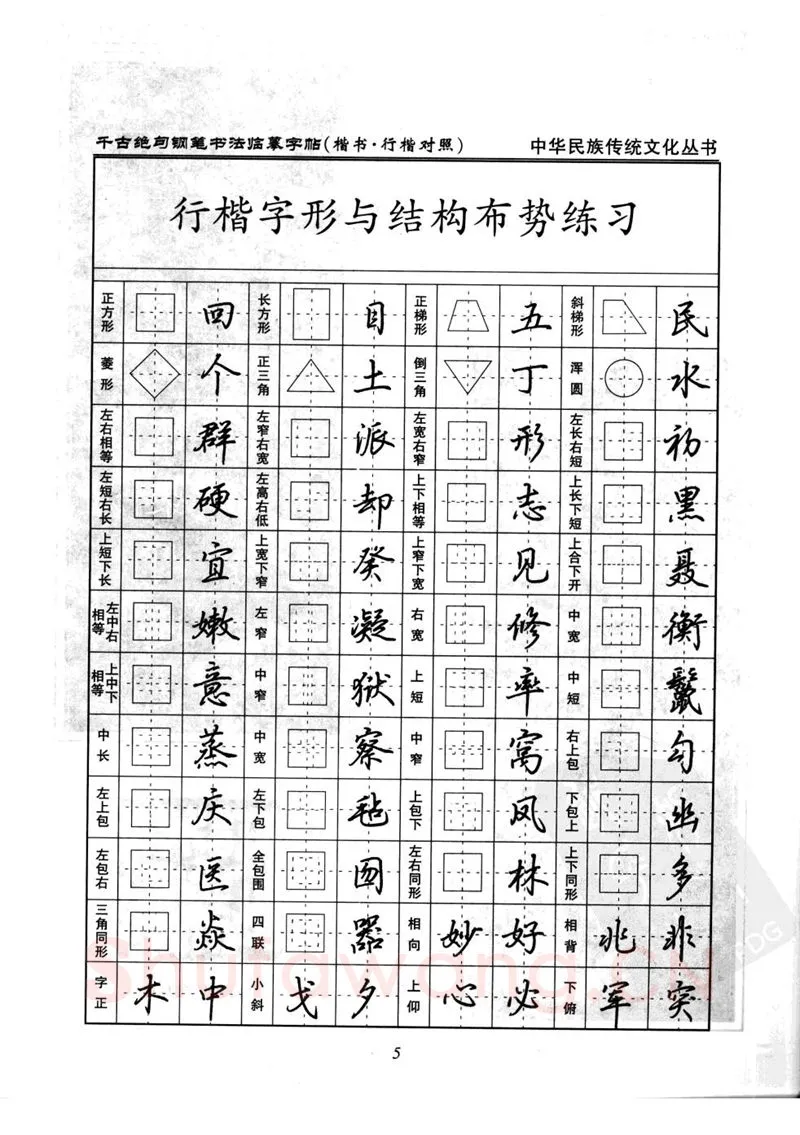 千古绝句钢笔书法临摹字帖(楷书·行楷对照) 中华民族传统文化丛书
行楷字形与结构布势练习
正方形 回 长方形 目 正梯形 五 斜梯形 民
菱形 个 正三角 土 倒三角 丁 浑圆 水
左右相等 群 左窄右宽 派 左宽右窄 形 左长右短 初
左短右长 硬 左高右低 却 上下相等 志 上长下短 黑
上短下长 宜 上宽下窄 癸 上窄下宽 见 上合下开 聂
左中右相等 嫩 左窄 凝 右宽 修 中宽 衡
上中下相等 意 中窄 狱 上短 率 中短 鬣
中长 蒸 中宽 察 中窄 窝 右上包 勾
左上包 庆 左下包 毡 上包下 凤 下包上 幽
左包右 医 全包围 图 左右同形 林 上下同形 多
三角同形 焱 四联 器 相向 妙 好 相背 兆 非
字正 木 中 小斜 戈 夕 上仰 心 必 下俯 军 突
5
Shufawang.CN
PDG